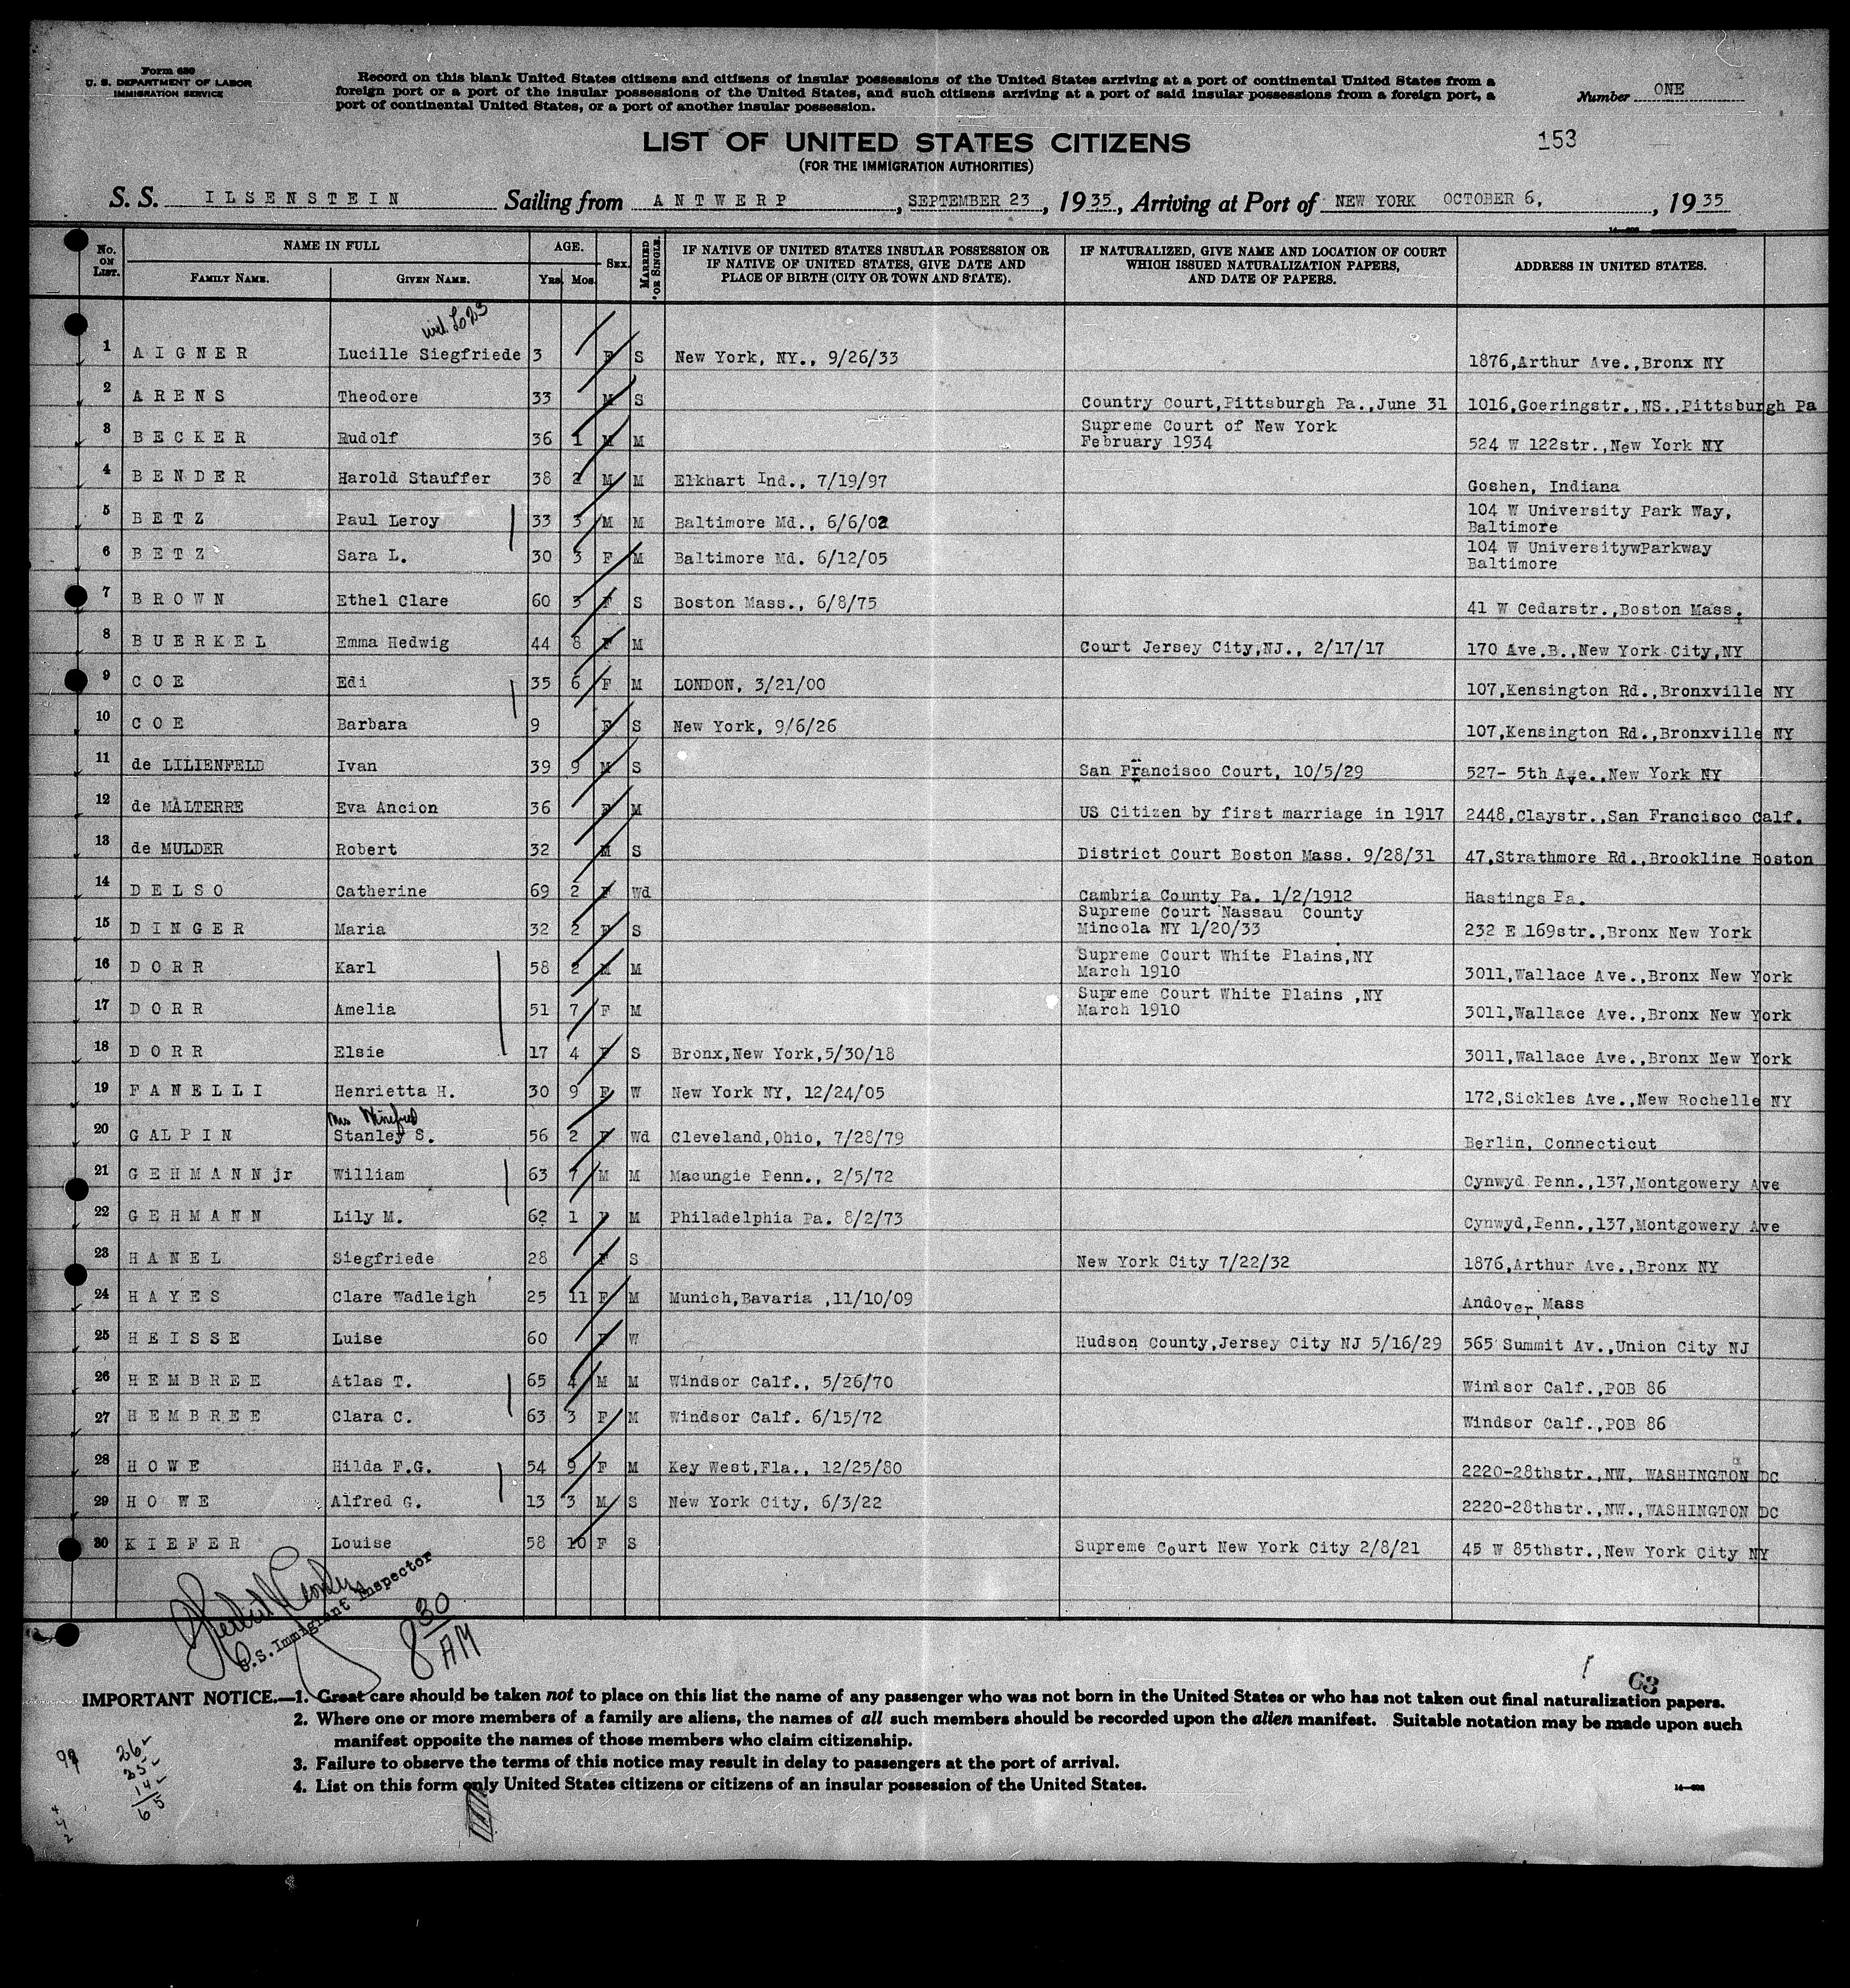 Form 630
U. S. DEPARTMENT OF LABOR
IMMIGRATION SERVICE
Record on this blank United States citizens and citizens of insular possessions of the United States arriving at a port of continental United States from a
foreign port or a port of the insular possessions of the United States, and such citizens arriving at a port of said insular possessions from a foreign port, a
port of continental United States, or a port of another insular possession.
Number ONE
LIST OF UNITED STATES CITIZENS
153
(FOR THE IMMIGRATION AUTHORITIES)
S. S. ILSENSTEIN Sailing from ANTWERP, SEPTEMBER 23, 1935, Arriving at Port of NEW YORK OCTOBER 6, , 1935
No. ON LIST. NAME IN FULL FAMILY NAME. GIVEN NAME. AGE. Yrs. Mos. SEX. MARRIED OR SINGLE. IF NATIVE OF UNITED STATES INSULAR POSSESSION OR IF NATIVE OF UNITED STATES, GIVE DATE AND PLACE OF BIRTH (CITY OR TOWN AND STATE). IF NATURALIZED, GIVE NAME AND LOCATION OF COURT WHICH ISSUED NATURALIZATION PAPERS, AND DATE OF PAPERS. ADDRESS IN UNITED STATES.
1 AIGNER Lucille Siegfriede 3 F S New York, NY., 9/26/33 1876,Arthur Ave.,Bronx NY
2 ARENS Theodore 33 M S Country Court,Pittsburgh Pa.,June 31 1016,Goeringstr.,NS.,Pittsburgh Pa
3 BECKER Rudolf 36 1 M M Supreme Court of New York February 1934 524 W 122str.,New York NY
4 BENDER Harold Stauffer 38 2 M M Elkhart Ind., 7/19/97 Goshen, Indiana
5 BETZ Paul Leroy 33 3 M M Baltimore Md., 6/6/02 104 W University Park Way, Baltimore
6 BETZ Sara L. 30 3 F M Baltimore Md. 6/12/05 104 W UniversitywParkway Baltimore
7 BROWN Ethel Clare 60 3 F S Boston Mass., 6/8/75 41 W Cedarstr.,Boston Mass.
8 BUERKEL Emma Hedwig 44 8 F M Court Jersey City,NJ., 2/17/17 170 Ave.B.,New York City,NY
9 COE Edi 35 6 F M LONDON, 3/21/00 107,Kensington Rd.,Bronxville NY
10 COE Barbara 9 F S New York, 9/6/26 107,Kensington Rd.,Bronxville NY
11 de LILIENFELD Ivan 39 9 M S San Francisco Court, 10/5/29 527- 5th Ave.,New York NY
12 de MALTERRE Eva Ancion 36 F M US Citizen by first marriage in 1917 2448,Claystr.,San Francisco Calf.
13 de MULDER Robert 32 M S District Court Boston Mass. 9/28/31 47,Strathmore Rd.,Brookline Boston
14 DELSO Catherine 69 2 F Wd Cambria County Pa. 1/2/1912 Hastings Pa.
15 DINGER Maria 32 2 F S Supreme Court Nassau County Mincola NY 1/20/33 232 E 169str.,Bronx New York
16 DORR Karl 58 2 M M Supreme Court White Plains,NY March 1910 3011,Wallace Ave.,Bronx New York
17 DORR Amelia 51 7 F M Supreme Court White Plains ,NY March 1910 3011,Wallace Ave.,Bronx New York
18 DORR Elsie 17 4 F S Bronx,New York,5/30/18 3011,Wallace Ave.,Bronx New York
19 FANELLI Henrietta H. 30 9 F W New York NY, 12/24/05 172,Sickles Ave.,New Rochelle NY
Mrs Winifred
20 GALPIN Stanley S. 56 2 F Wd Cleveland,Ohio, 7/28/79 Berlin, Connecticut
21 GEHMANN jr William 63 7 M M Macungie Penn., 2/5/72 Cynwyd Penn.,137,Montgowery Ave
22 GEHMANN Lily M. 62 1 F M Philadelphia Pa. 8/2/73 Cynwyd,Penn.,137,Montgowery Ave
23 HANEL Siegfriede 28 F S New York City 7/22/32 1876,Arthur Ave.,Bronx NY
24 HAYES Clare Wadleigh 25 11 F M Munich,Bavaria ,11/10/09 Andover Mass
25 HEISSE Luise 60 F W Hudson County,Jersey City NJ 5/16/29 565 Summit Av.,Union City NJ
26 HEMBREE Atlas T. 65 4 M M Windsor Calf., 5/26/70 Windsor Calf.,POB 86
27 HEMBREE Clara C. 63 3 F M Windsor Calf. 6/15/72 Windsor Calf.,POB 86
28 HOWE Hilda F.G. 54 9 F M Key West,Fla., 12/25/80 2220-28thstr.,NW, WASHINGTON DC
29 HOWE Alfred G. 13 3 M S New York City, 6/3/22 2220-28thstr.,NW.,WASHINGTON DC
30 KIEFER Louise 58 10 F S Supreme Court New York City 2/8/21 45 W 85thstr.,New York City NY
U.S. Immigrant Inspector
8 30 AM
63
IMPORTANT NOTICE.—1. Great care should be taken not to place on this list the name of any passenger who was not born in the United States or who has not taken out final naturalization papers.
2. Where one or more members of a family are aliens, the names of all such members should be recorded upon the alien manifest. Suitable notation may be made upon such
manifest opposite the names of those members who claim citizenship.
3. Failure to observe the terms of this notice may result in delay to passengers at the port of arrival.
4. List on this form only United States citizens or citizens of an insular possession of the United States.
26
25
14
65